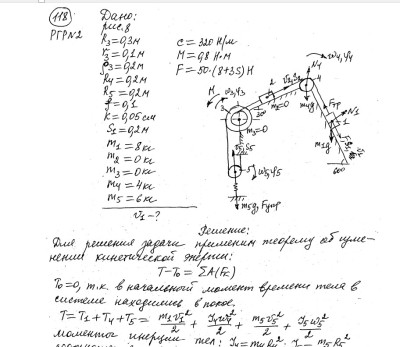 118
РГР№2
Дано:
рис.8
R₃=0,3м
r₃=0,1м
ρ₃=0,2м
R₄=0,2м
R₅=0,2м
f=0,1
k=0,05см
S₁=0,2м
m₁=8кг
m₂=0кг
m₃=0кг
m₄=4кг
m₅=6кг
V₁-?
c=320 Н/м
M=0,8 Н·м
F=50·(8+3S) Н
M
ω₃,φ₃
2
ω₄,φ₄
N₄
4
30°
m₂=0
m₃=0
m₄g
Fтр
N₁
1
m₁g
60°
5
ω₅,φ₅
m₅g, Fупр
Решение:
Для решения задачи применим теорему об изме-
нении кинетической энергии:
T-T₀=ΣA(Fₖ)
T₀=0, т.к. в начальный момент времени тела в
системе находились в покое.
T=T₁+T₄+T₅= m₁V₁²/2 + J₄ω₄²/2 + m₅V₅²/2 + J₅ω₅²/2
моменты инерции тел: